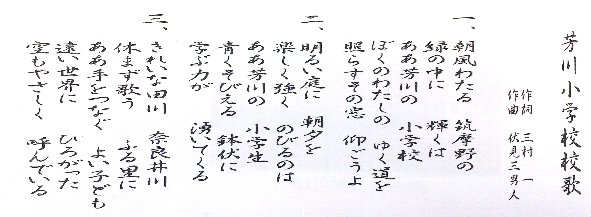 芳川小学校校歌
作詞 三村 一
作曲 伏見三男人
一、朝風わたる 筑摩野の
緑の中に 輝くは
ああ芳川の 小学校
ぼくのわたしの ゆく道を
照らすその窓 仰ごうよ
二、明るい庭に 朝夕を
楽しく強く のびるのは
ああ芳川の 小学生
青くそびえる 鉢伏に
学ぶ力が 湧いてくる
三、きれいな田川 奈良井川
休まず歌う ふる里に
ああ手をつなぐ よい子ども
遠い世界に ひろがった
空もやさしく 呼んでいる